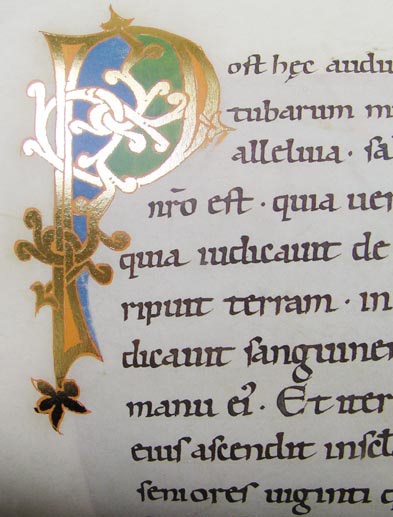 Poſt hęc audiu
tubarum m
alleluia · ſal
nr̄o eſt · quia uer
quia iudicauit de
ripuit terram · in
dicauit ſanguinem
manu ei᾽ · Et iter
eius aſcendit inſcł
ſeniores uiginti q